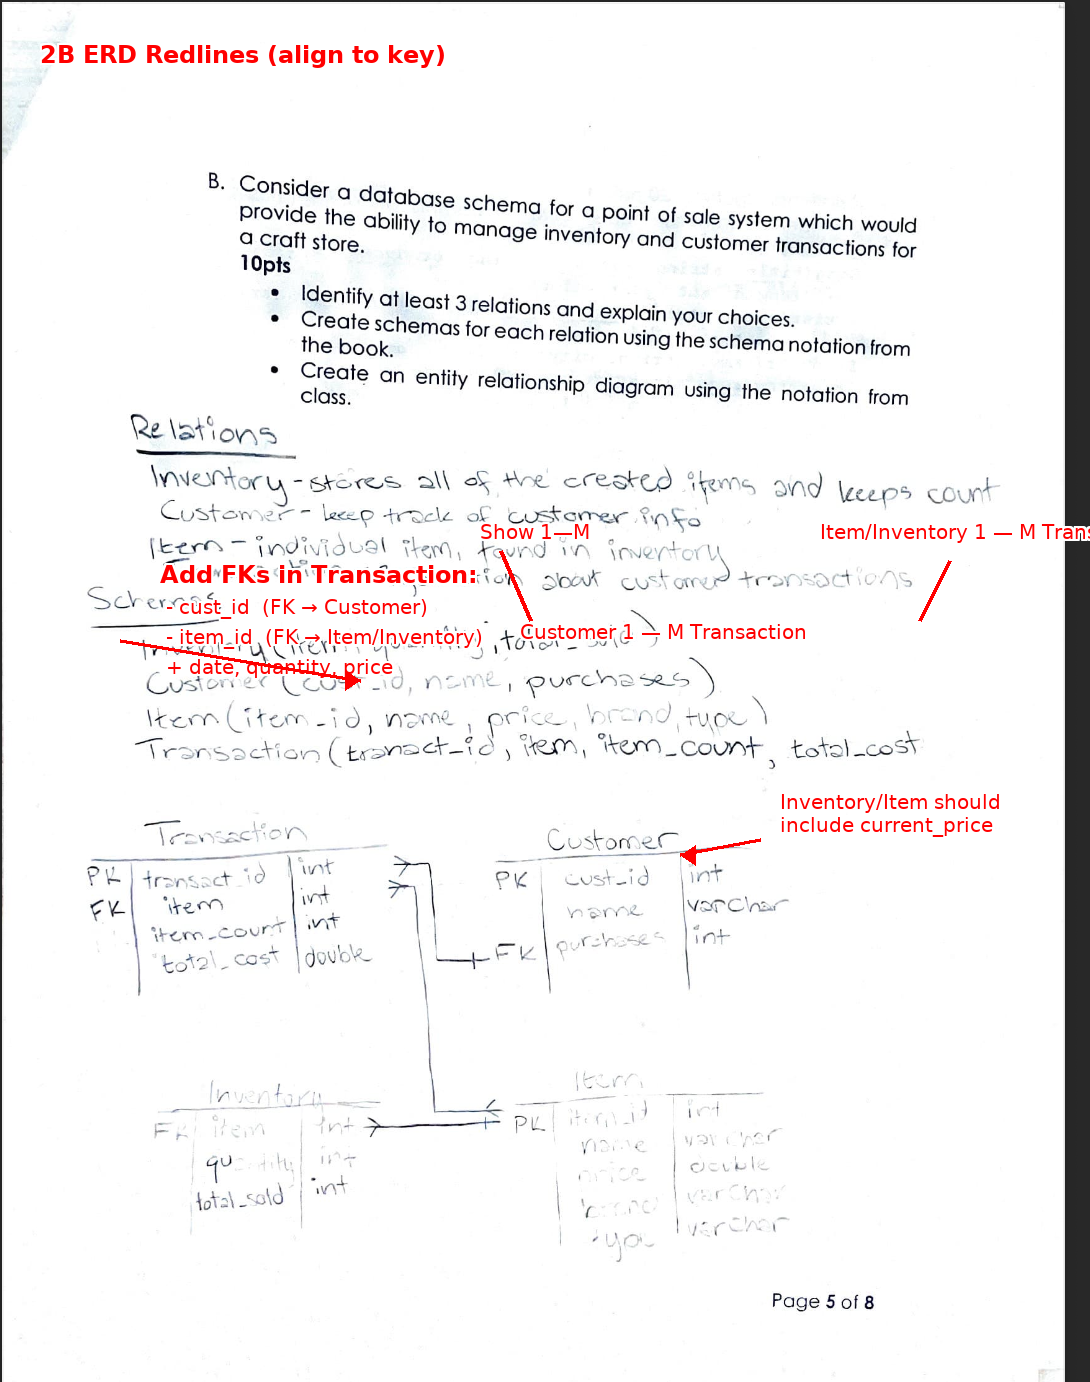 2B ERD Redlines (align to key)
B. Consider a database schema for a point of sale system which would
provide the ability to manage inventory and customer transactions for
a craft store.
10pts
• Identify at least 3 relations and explain your choices.
• Create schemas for each relation using the schema notation from
the book.
• Create an entity relationship diagram using the notation from
class.
Relations
Inventory - stores all of the created items and keeps count
Customer - keep track of customer info
Show 1—M
Item/Inventory 1 — M Trans
Item - individual item, found in inventory
Add FKs in Transaction:
about customer transactions
Schemas
- cust_id (FK → Customer)
- item_id (FK → Item/Inventory)
Customer 1 — M Transaction
Inventory (item, quantity, total_sold)
+ date, quantity, price
Customer (cust_id, name, purchases)
Item (item_id, name, price, brand, type)
Transaction (tranact_id, item, item_count, total_cost
Inventory/Item should
include current_price
Transaction
PK transact_id int
FK item int
item_count int
total_cost double
Customer
PK cust_id int
name varchar
FK purchases int
Inventory
FK item int
quantity int
total_sold int
Item
PK item_id int
name varchar
price double
brand varchar
type varchar
Page 5 of 8